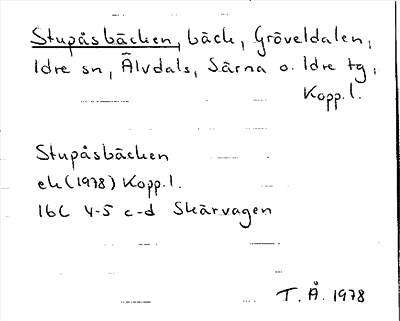 Stupåsbäcken, bäck, Gröveldalen,
Idre sn, Älvdals, Särna o. Idre tg,
Kopp.l.
Stupåsbäcken
ek (1978) Kopp.l.
16C 4-5 c-d Skärvagen
T. Å. 1978